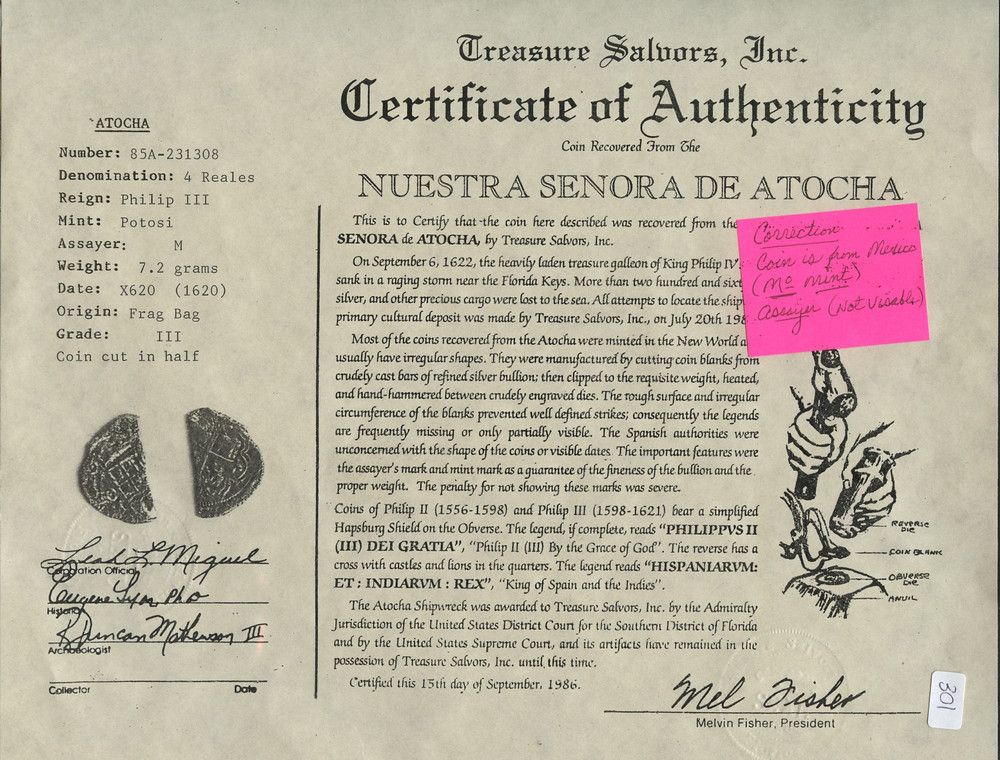 Treasure Salvors, Inc.
Certificate of Authenticity
Coin Recovered From The
NUESTRA SENORA DE ATOCHA
ATOCHA
Number: 85A-231308
Denomination: 4 Reales
Reign: Philip III
Mint: Potosi
Assayer: M
Weight: 7.2 grams
Date: X620 (1620)
Origin: Frag Bag
Grade: III
Coin cut in half
Corporation Official
Eugene Lyon PhD
Historian
R Duncan Mathewson III
Archaeologist
Collector Date
This is to Certify that the coin here described was recovered from the
SENORA de ATOCHA, by Treasure Salvors, Inc.
On September 6, 1622, the heavily laden treasure galleon of King Philip IV
sank in a raging storm near the Florida Keys. More than two hundred and sixt
silver, and other precious cargo were lost to the sea. All attempts to locate the ship
primary cultural deposit was made by Treasure Salvors, Inc., on July 20th 198
Most of the coins recovered from the Atocha were minted in the New World a
usually have irregular shapes. They were manufactured by cutting coin blanks from
crudely cast bars of refined silver bullion; then clipped to the requisite weight, heated,
and hand-hammered between crudely engraved dies. The rough surface and irregular
circumference of the blanks prevented well defined strikes; consequently the legends
are frequently missing or only partially visible. The Spanish authorities were
unconcerned with the shape of the coins or visible dates. The important features were
the assayer's mark and mint mark as a guarantee of the fineness of the bullion and the
proper weight. The penalty for not showing these marks was severe.
Coins of Philip II (1556-1598) and Philip III (1598-1621) bear a simplified
Hapsburg Shield on the Obverse. The legend, if complete, reads "PHILIPPVS II
(III) DEI GRATIA", "Philip II (III) By the Grace of God". The reverse has a
cross with castles and lions in the quarters. The legend reads "HISPANIARVM:
ET : INDIARVM : REX", "King of Spain and the Indies".
The Atocha Shipwreck was awarded to Treasure Salvors, Inc. by the Admiralty
Jurisdiction of the United States District Court for the Southern District of Florida
and by the United States Supreme Court, and its artifacts have remained in the
possession of Treasure Salvors, Inc. until this time.
Certified this 15th day of September, 1986.
Mel Fisher
Melvin Fisher, President
Correction
Coin is from Mexico
(Mo mint)
Assayer (Not Visable)
REVERSE
DIE
COIN BLANK
OBVERSE
DIE
ANVIL
301